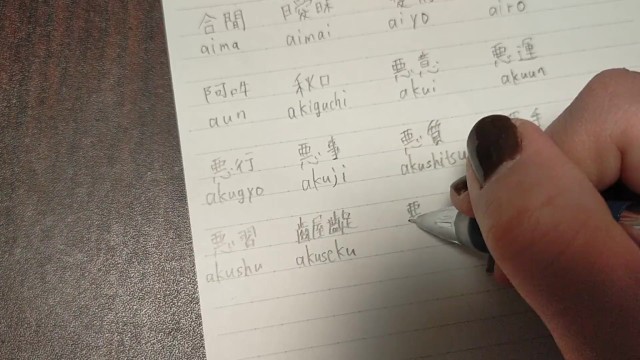 合間 曖昧
aima aimai aiyo airo
阿吽 秋口 悪意 悪運
aun akiguchi akui akuun
悪行 悪事 悪質
akugyo akuji akushitsu
悪習 齷齪
akushu akuseku